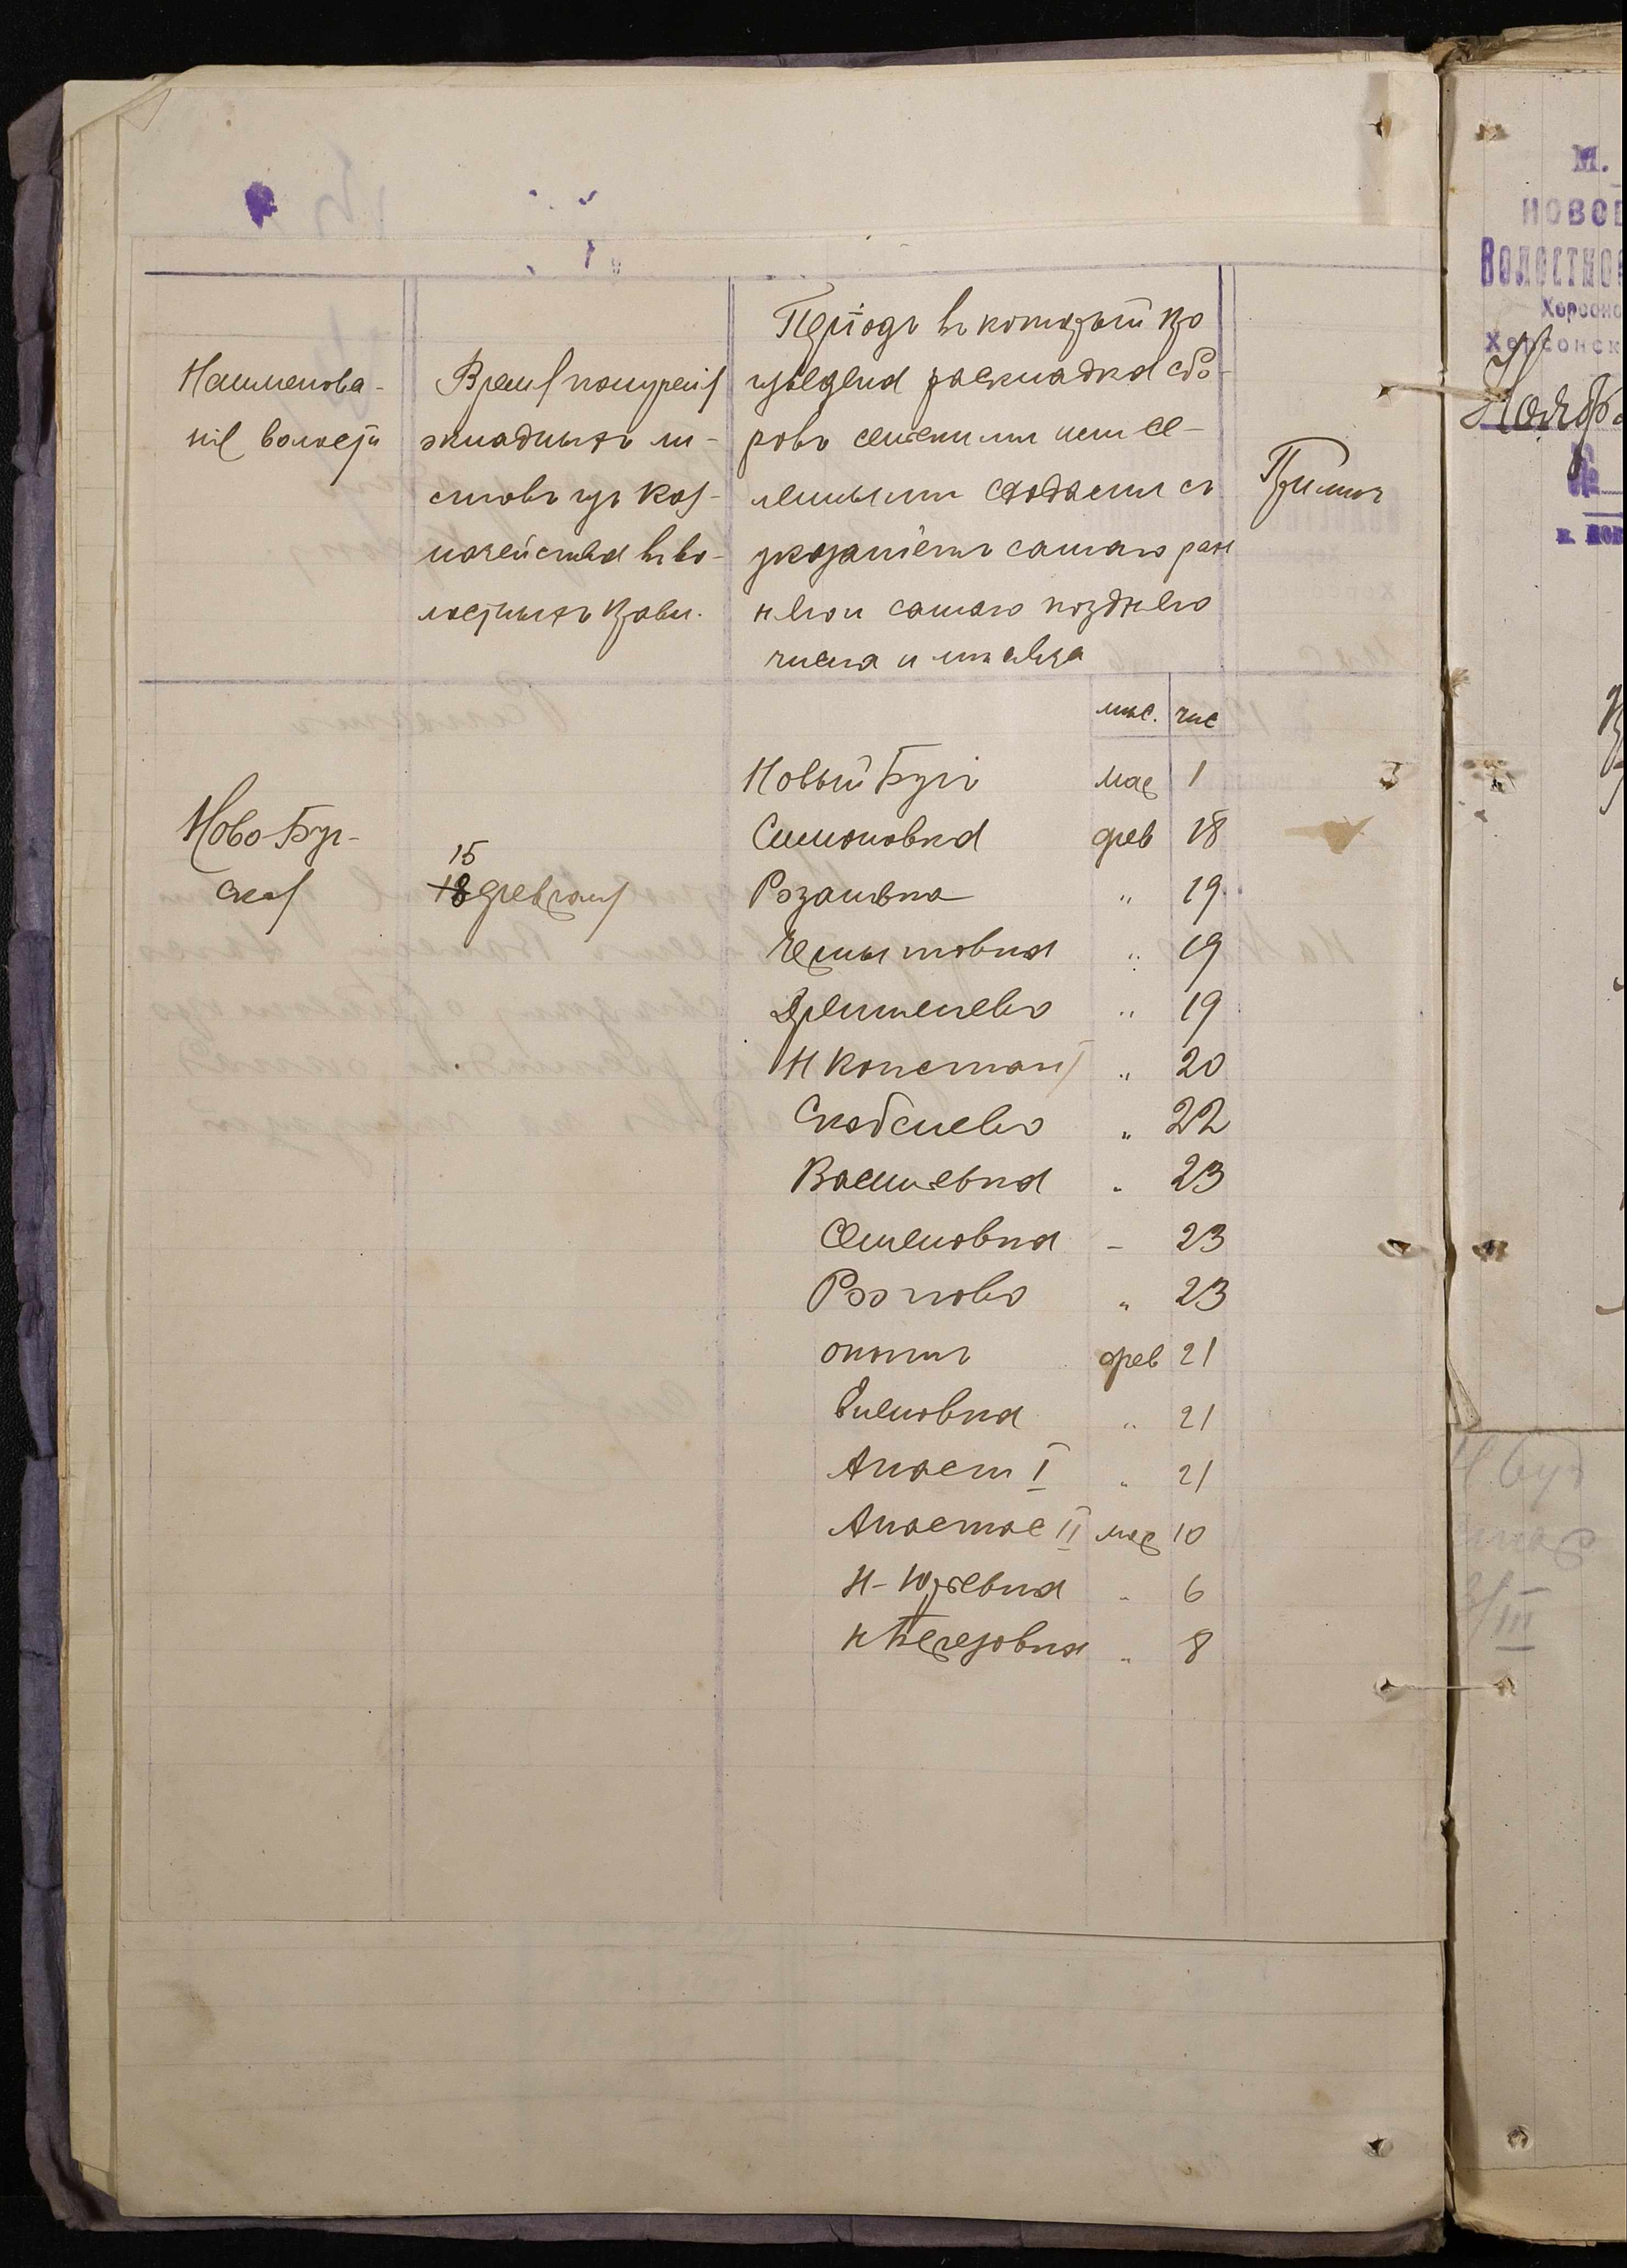 Наименова-
ніе волости
Время получения
окладныхъ ли-
стовъ изъ Каз-
начейства въ во-
лостныхъ правл.
Періодъ въ который про
изведена раскладка сбо-
ровъ сельскими или се-
ленными сходами съ
указаніемъ самаго ран
няго и самаго поздняго
числа и мѣсяца
Примѣч
мѣс. чис
Ново-Буг-
ская
15
18 февраля
Новый Бугъ мар 1
Симоновка фев 18
Розановка " 19
" 19
" 19
Н Констант " 20
Скобелево " 22
Васильевка " 23
Семеновка - 23
" 23
фев 21
Еленовка " 21
Анаст I " 21
Анастас II мар 10
Н-Юрьевка " 6
Н Березовка " 8
М.
НОВОБ
Волостное
Херсонс
Херсонск
№
III